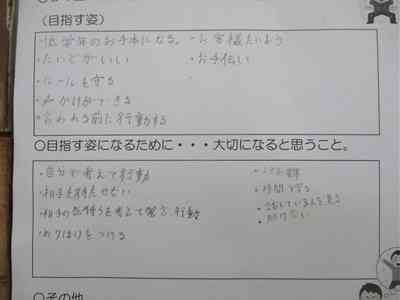 (目指す姿)
・低学年のお手本になる。
・たいどがいい
・ルールを守る
・声かけができる
・言われる前に行動する
・お手伝い
○目指す姿になるために・・・大切になると思うこと。
・自分で考えて行動
・相手を待たせない
・相手の気持ちを考えて発言、行動
・めりはりをつける
・時間を守る
・話している人を見る
・助け合い
○その他